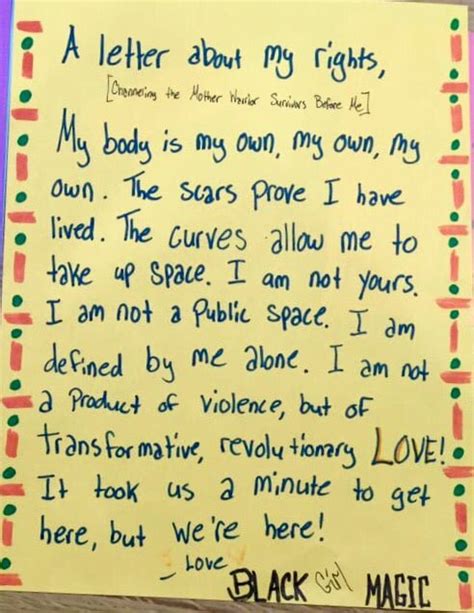 A letter about my rights,
[Channeling the Mother Warrior Survivors Before Me]
My body is my own, my own, my
own. The scars prove I have
lived. The curves allow me to
take up space. I am not yours.
I am not a Public Space. I am
defined by me alone. I am not
a Product of violence, but of
transformative, revolutionary LOVE!
It took us a minute to get
here, but we're here!
- Love
BLACK Girl MAGIC